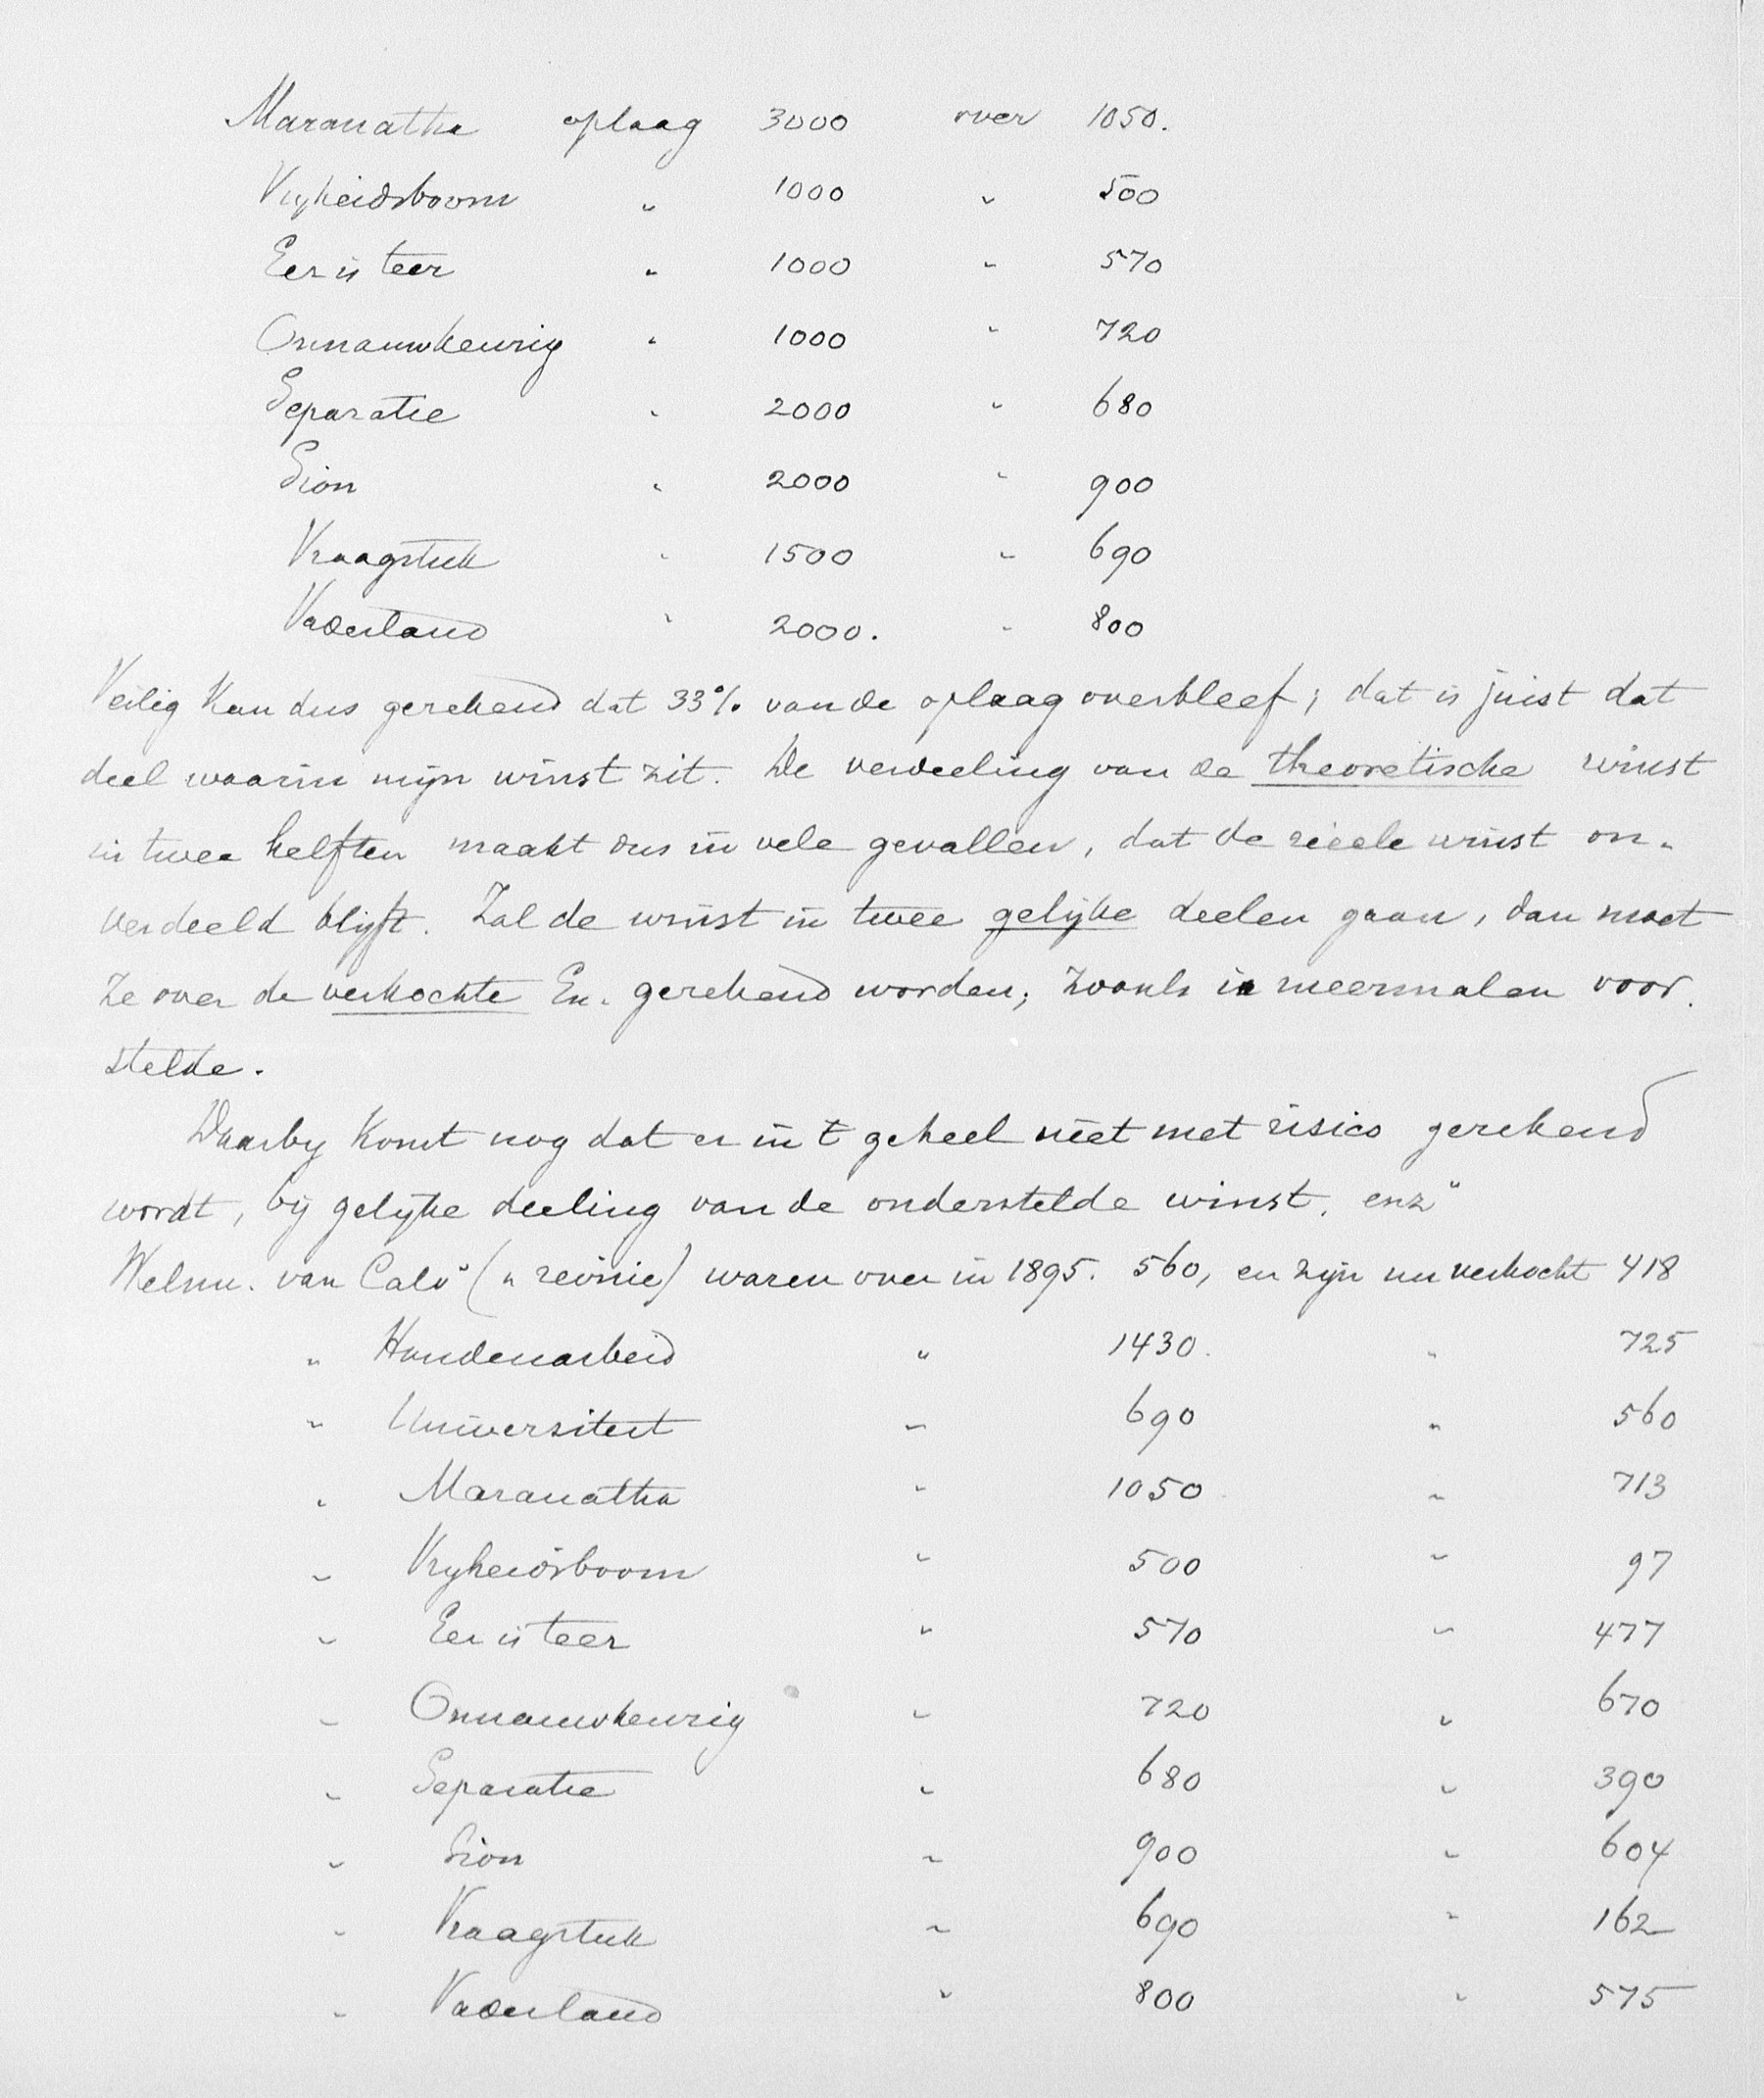 Maranatha oplaag 3000 over 1050.
Vryheidsboom " 1000 " 500
Eer is teer " 1000 " 570
Onnauwkeurig " 1000 " 720
Separatie " 2000 " 680
Sion " 2000 " 900
Vraagstuk " 1500 " 690
Vaderland " 2000. " 800
Veilig kan dus gerekend dat 33% van de oplaag overbleef; dat is juist dat
deel waarin mijn winst zit. De verdeeling van de theoretische winst
in twee helften maakt dus in vele gevallen, dat de reëele winst on-
verdeeld blijft. Zal de winst in twee gelijke deelen gaan, dan moet
ze over de verkochte Ex. gerekend worden; zooals ik meermalen voor-
stelde.
Daarby komt nog dat er in 't geheel niet met risico gerekend
wordt, bij gelijke deeling van de onderstelde winst. enz"
Welnu. van Calv" (n revisie) waren over in 1895. 560, en zijn nu verkocht 418
" Handenarbeid " 1430. " 725
" Universiteit " 690 " 560
" Maranatha " 1050 " 713
" Vryheidsboom " 500 " 97
" Eer is teer " 570 " 477
" Onnauwkeurig " 720 " 670
" Separatie " 680 " 390
" Sion " 900 " 604
" Vraagstuk " 690 " 162
" Vaderland " 800 " 575